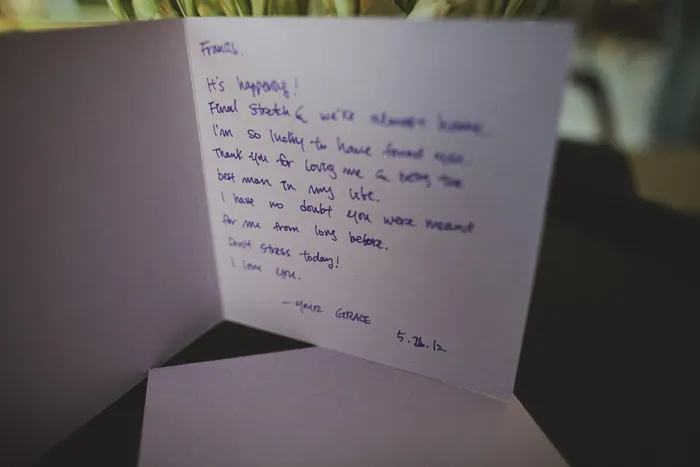 Francis.
It's happening!
Final stretch & we're almost home.
I'm so lucky to have found you.
Thank you for loving me & being the
best man in my life.
I have no doubt you were meant
for me from long before.
Don't stress today!
I love you.
- YOUR GRACE
5.26.12